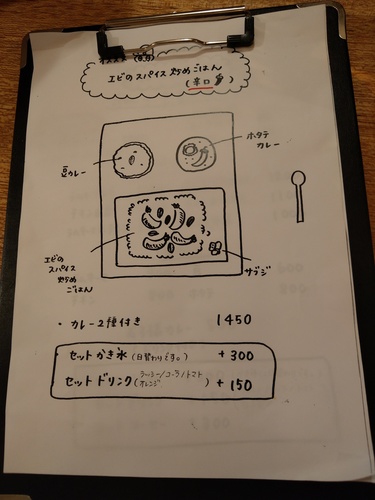 エビのスパイス炒めごはん
(辛口)
ホタテ
カレー
豆カレー
エビの
スパイス
炒め
ごはん
サブジ
・カレー2種付き 1450
セットかき氷(日替わりです。) +300
セットドリンク(ラッシー/コーラ/トマト
オレンジ) +150